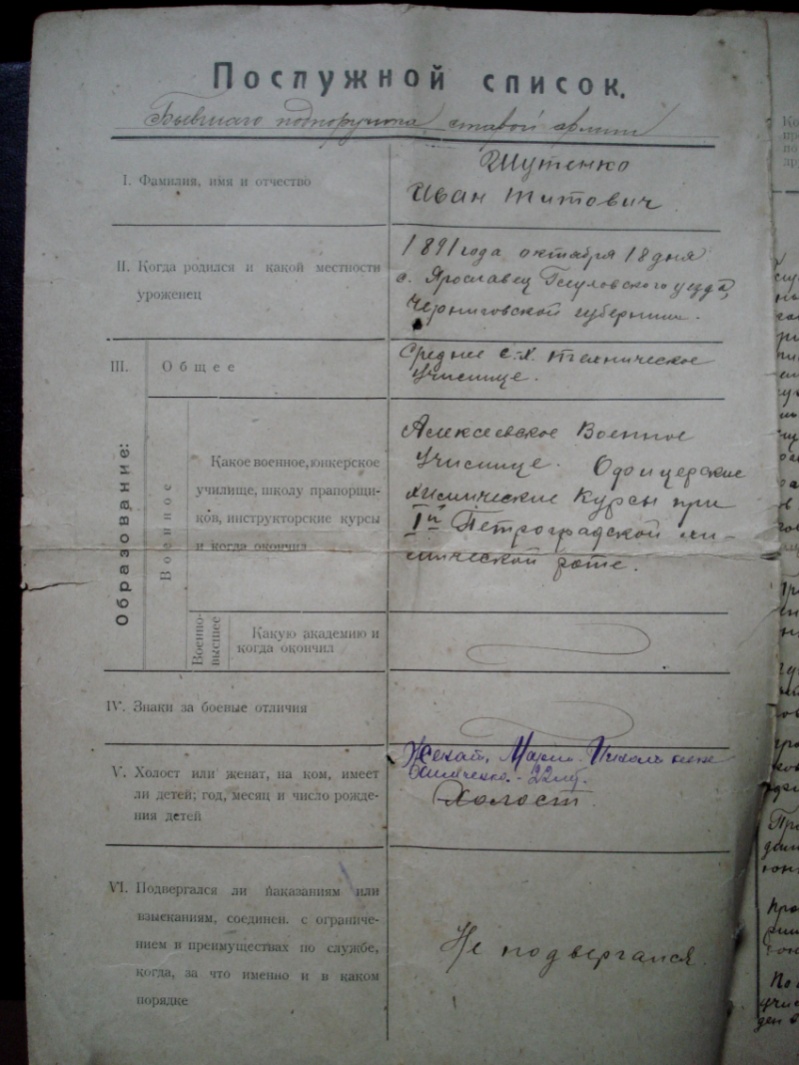 Послужной список.
Бывшаго подпоручика старой армии
I. Фамилия, имя и отчество
Шутенко
Иван Титович
II. Когда родился и какой местности
уроженец
1891 года октября 18 дня
с. Ярославец Глуховского уезда,
Черниговской губернии.
Образование:
III. Общее
Среднее с.-х. техническое
училище.
Военное
Какое военное, юнкерское
училище, школу прапорщи-
ков, инструкторские курсы
и когда окончил
Алексеевское Военное
училище. Офицерские
химические курсы при
Iй Петроградской хи-
мической роте.
Военно-
высшее
Какую академию и
когда окончил
IV. Знаки за боевые отличия
V. Холост или женат, на ком, имеет
ли детей; год, месяц и число рожде-
ния детей
Женат, Мария
22
Холост
VI. Подвергался ли наказаниям или
взысканиям, соединен. с ограниче-
нием в преимуществах по службе,
когда, за что именно и в каком
порядке
Не подвергался.